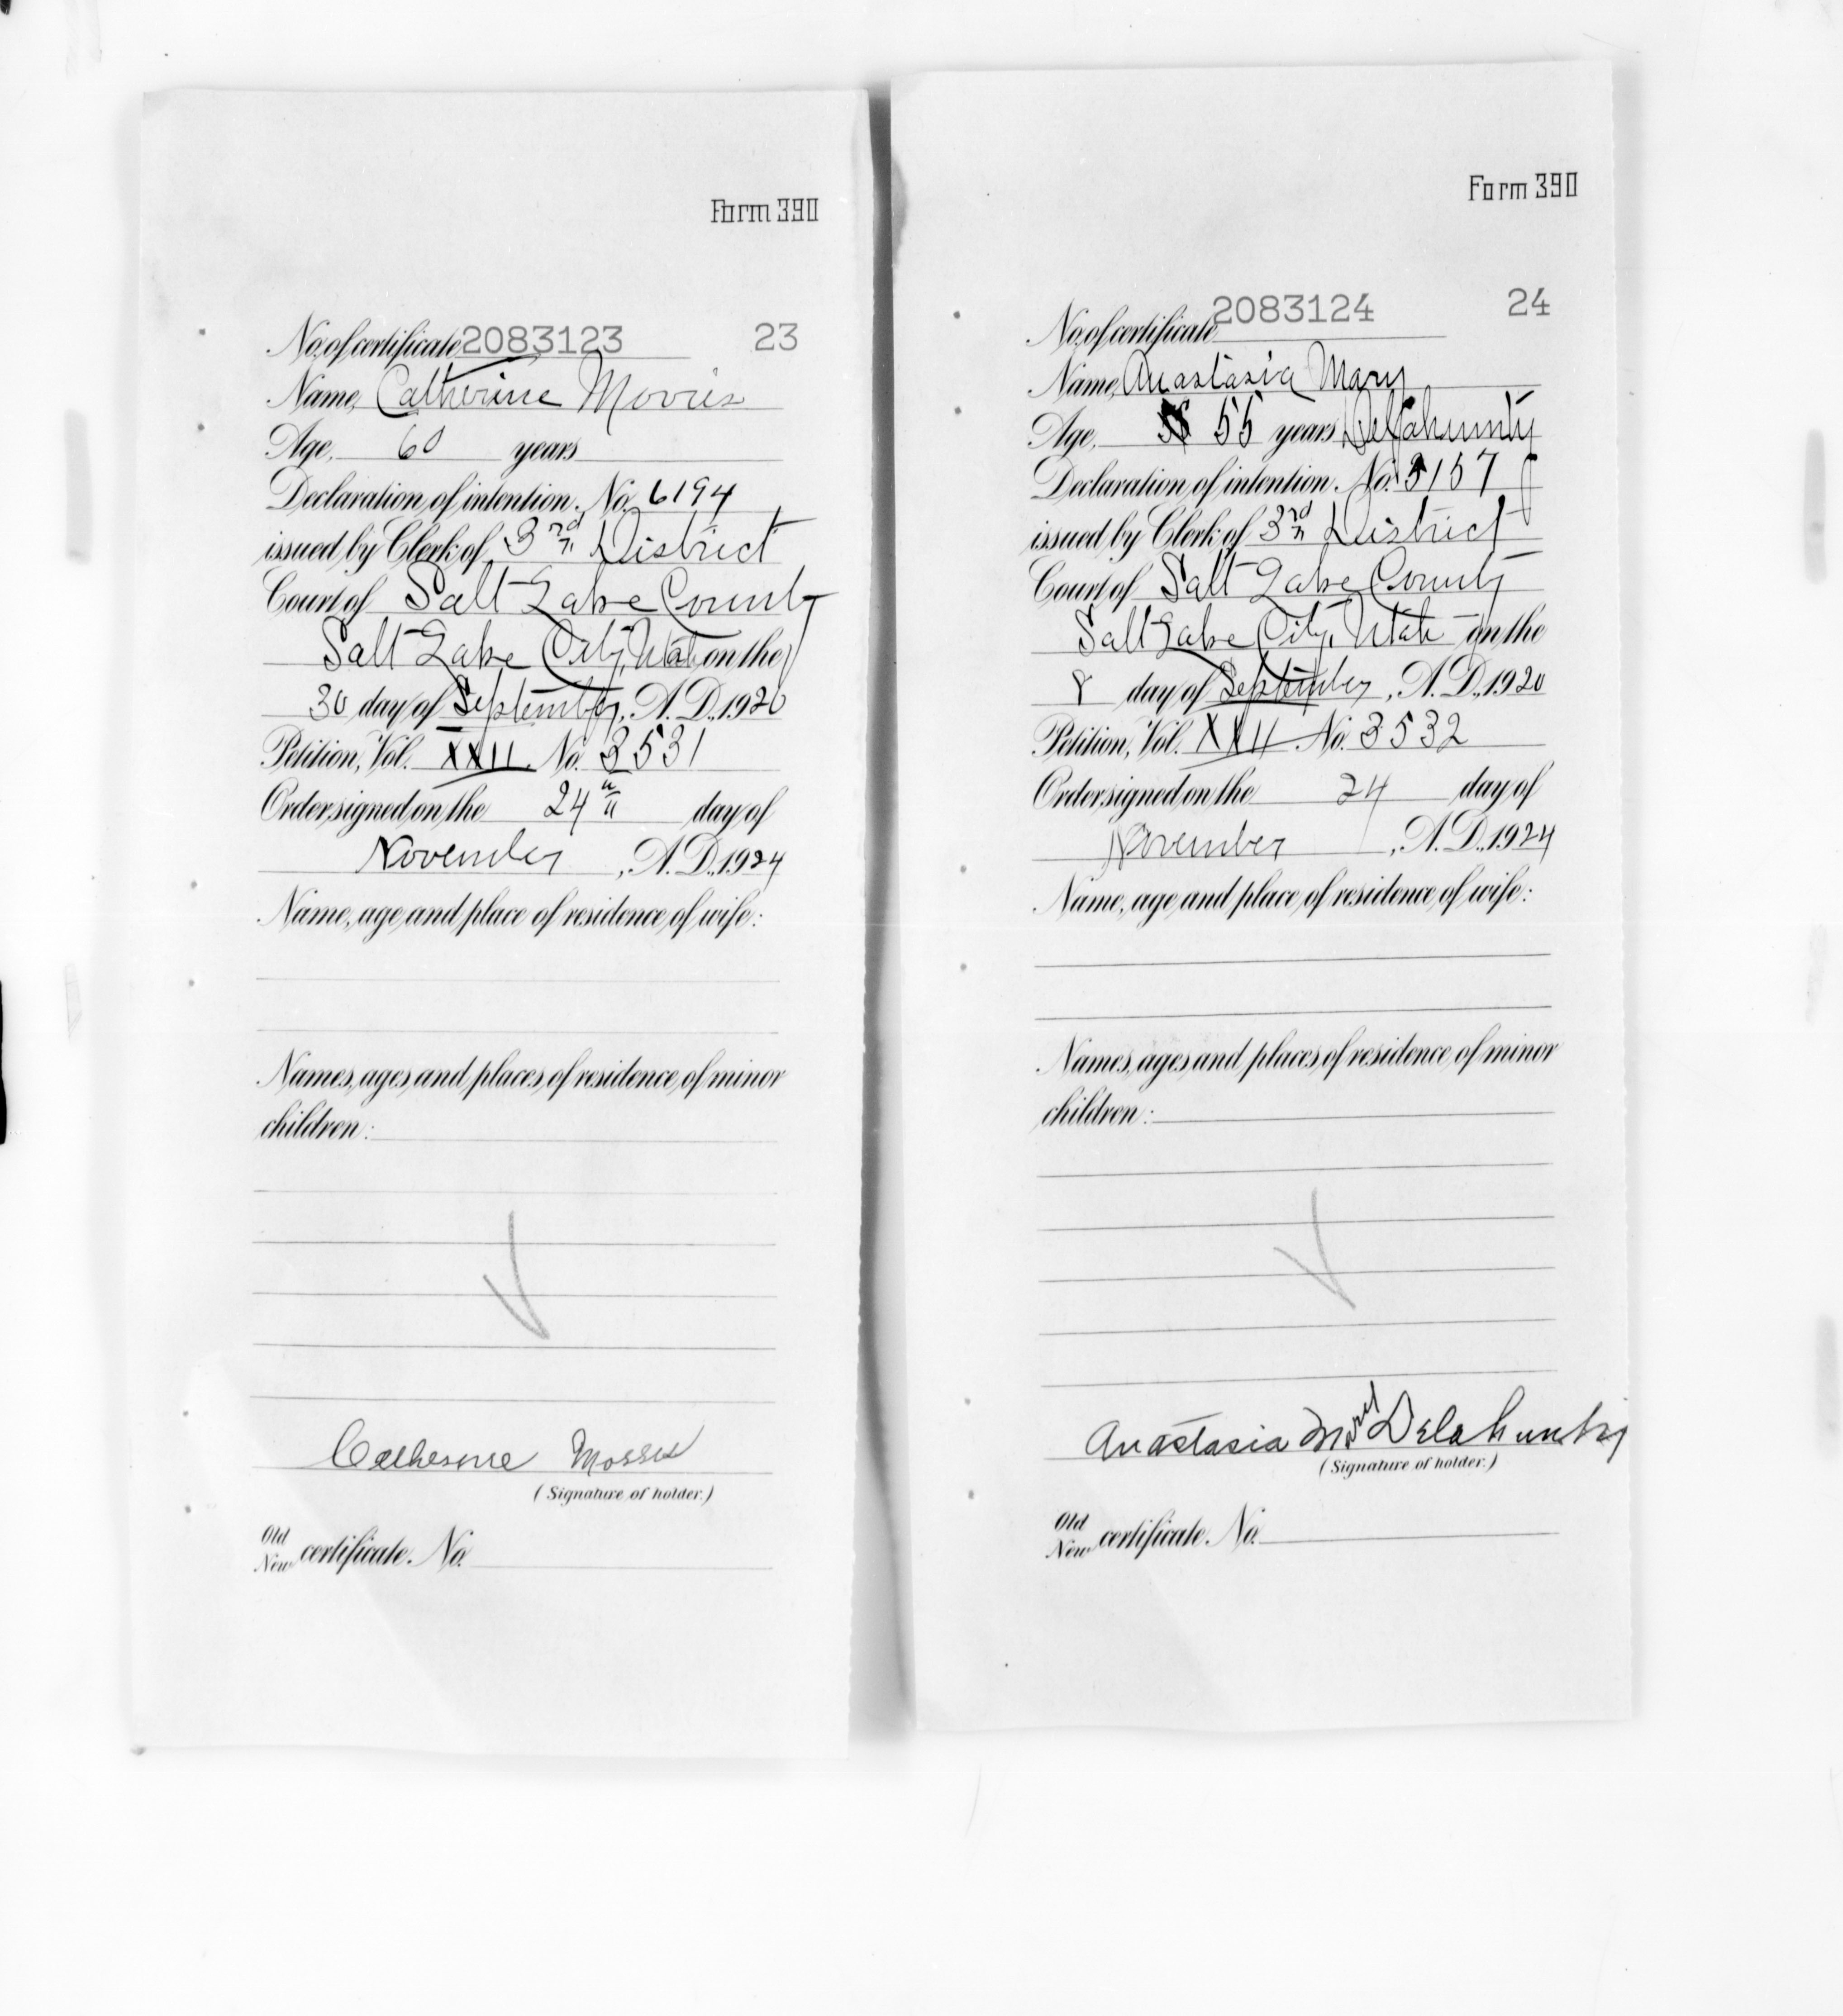 Form 390
No. of certificate 2083123 23
Name, Catherine Morris
Age, 60 years
Declaration of intention, No. 6194
issued by Clerk of 3rd District
Court of Salt Lake County
Salt Lake City, Utah on the
30 day of September, A. D., 1920
Petition, Vol. XXII No. 3531
Order signed on the 24th day of
November, A. D., 1924
Name, age and place of residence of wife:
Names, ages and places of residence of minor
children:
Catherine Morris
(Signature of holder.)
Old
New certificate. No.
Form 390
No. of certificate 2083124 24
Name, Anastasia Mary
Age, 55 years Delahunty
Declaration of intention. No. 5157
issued by Clerk of 3rd District
Court of Salt Lake County
Salt Lake City, Utah on the
8 day of September, A. D., 1920
Petition, Vol. XXII No. 3532
Order signed on the 24 day of
November, A. D., 1924
Name, age and place of residence of wife:
Names, ages and places of residence of minor
children:
Anastasia Delahunty
(Signature of holder.)
Old
New certificate. No.